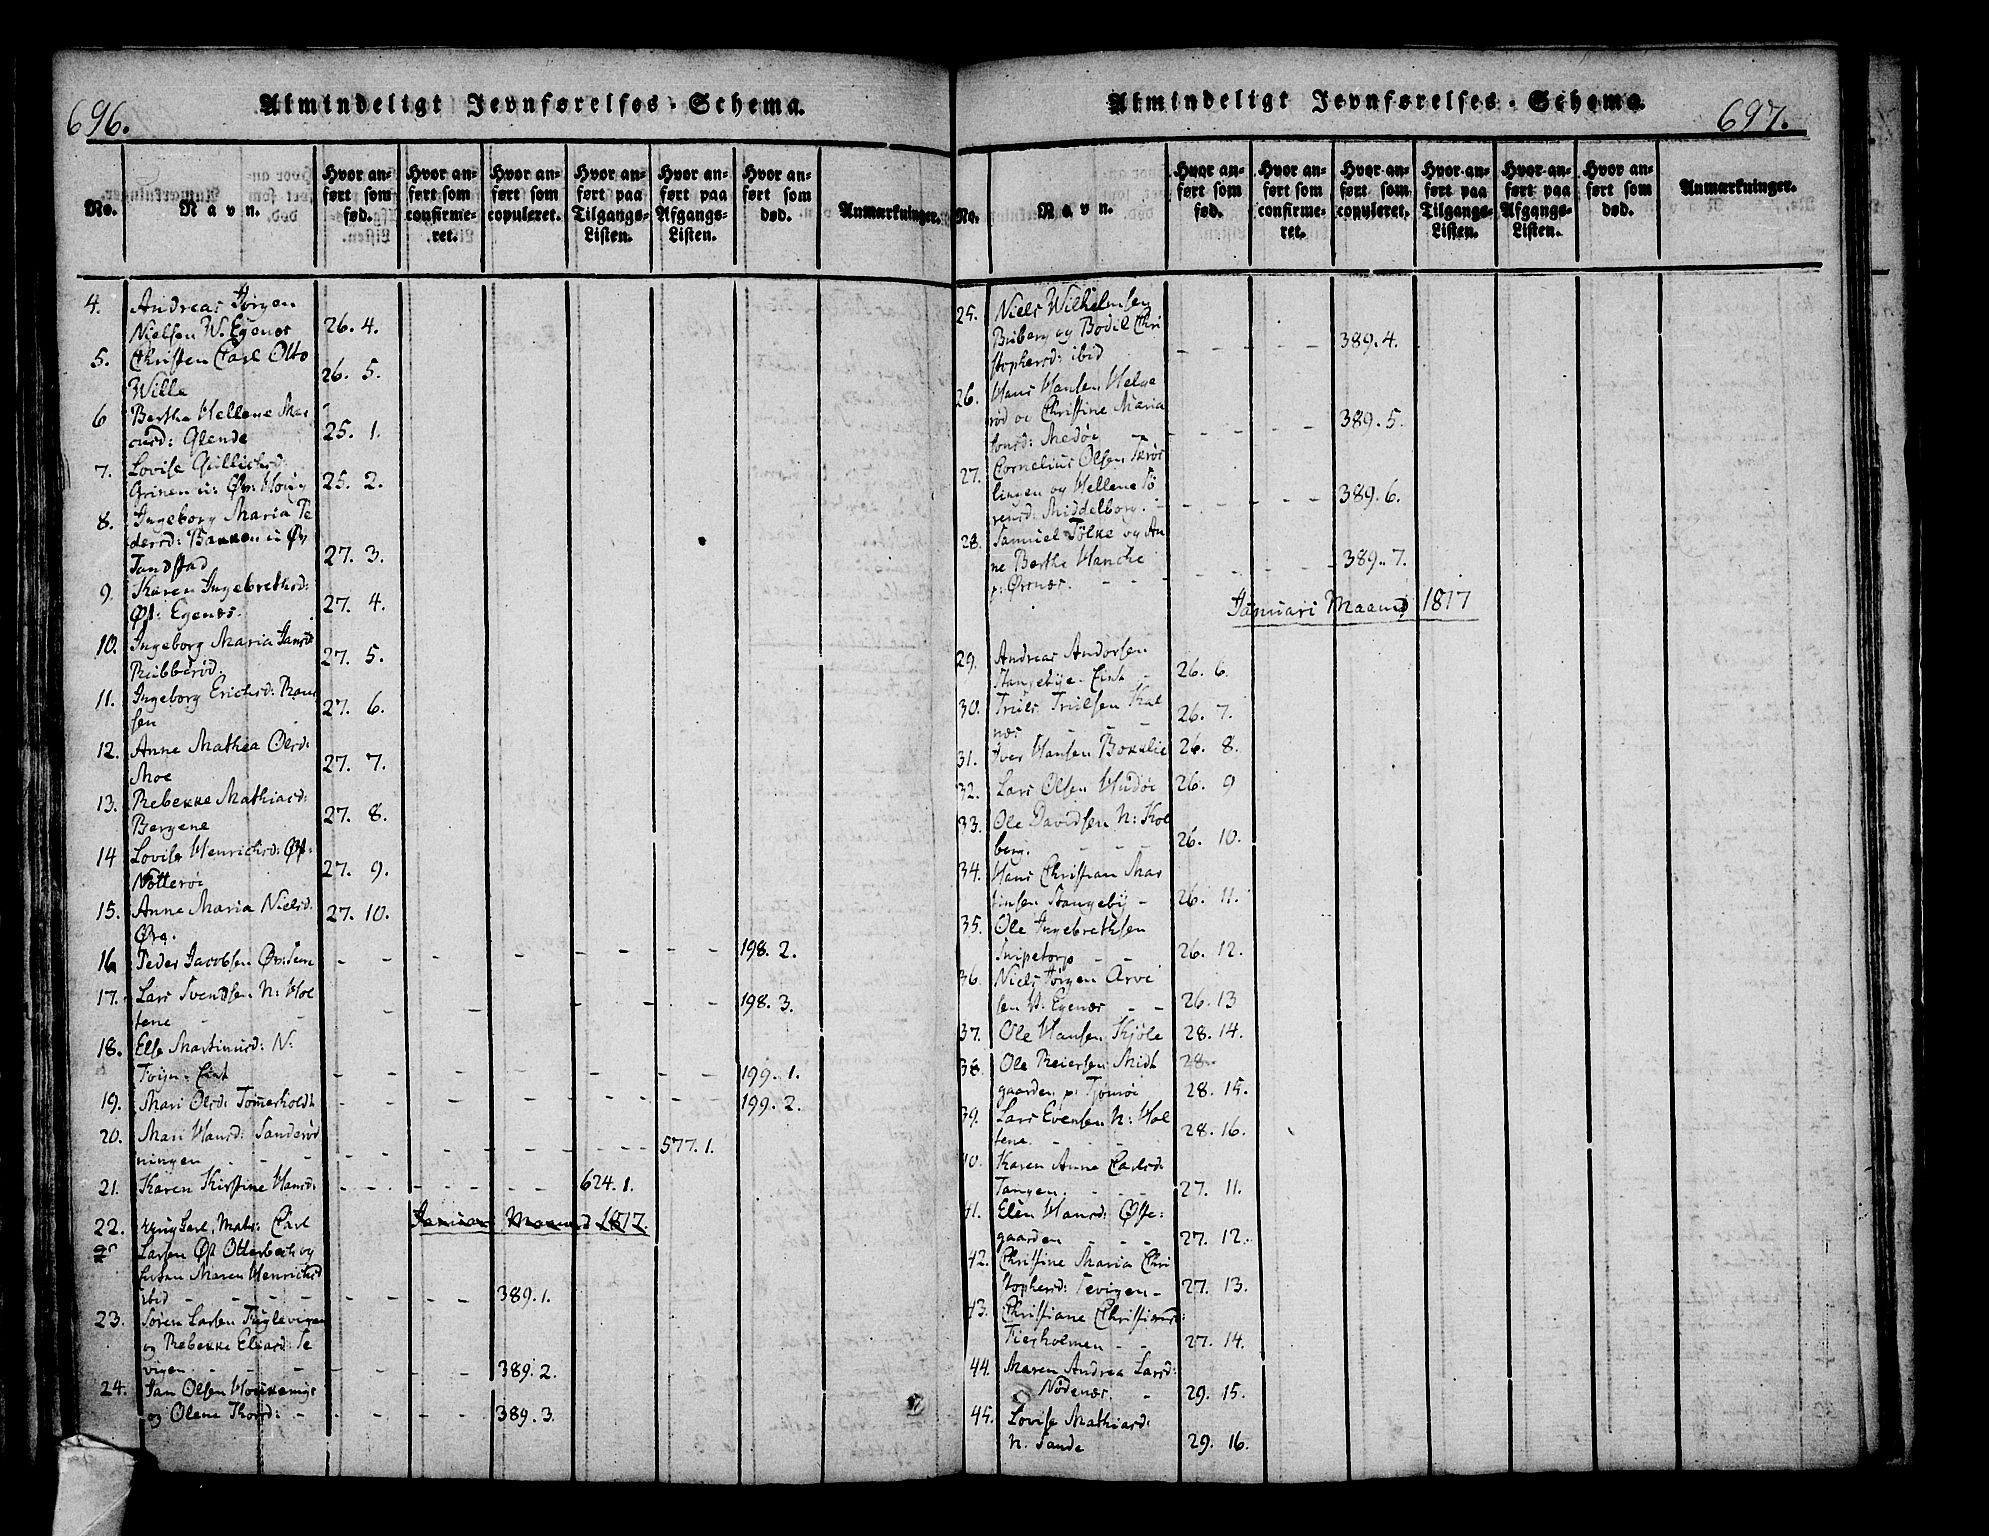 696.
Almindeligt Jevnførelses-Schema.
No.
Navn.
Hvor an-
ført som
fød.
Hvor an-
ført som
confirme-
ret.
Hvor an-
ført som
copuleret.
Hvor an-
ført paa
Tilgangs-
Listen.
Hvor an-
ført paa
Afgangs-
Listen.
Hvor an-
ført som
død.
Anmærkninger.
4. Andreas Jørgen
Nielsen W. Egenes 26. 4.
5. Christen Carl Otto
Wille 26. 5.
6 Berthe Hellene Mar
cusd: Glende 25. 1.
7. Lovise Gullichsd:
Grinen u: Øv: Houg 25. 2.
8. Ingeborg Maria Pe
dersd: Bakken u: Øv
Tandstad 27. 3.
9. Karen Ingebrethsd:
Øst: Egenæs. 27. 4.
10. Ingeborg Maria Jansd:
Ribberød 27. 5.
11. Ingeborg Erichsd: Ram
sen 27. 6.
12. Anne Mathea Olsd:
Moe 27. 7.
13. Rebekke Mathiasd:
Bergene 27. 8.
14 Lovise Henrichsd: Øst:
Nøtterøi 27. 9.
15. Anne Maria Nielsd: 27. 10.
Øra.
16 Peder Jacobsen Øv: Sem 198. 2.
17. Lars Svendsen N: Hol 198. 3.
tene
18. Else Martinusd: N:
199. 1.
19. Mari Olsd: Tømerholdt 199. 2.
20. Mari Hansd: Sanderød
ningen 577. 1.
21. Karen Kirstine Hansd: 624. 1.
Januar Maaned 1817.
22. Carl
Larsen Øst Otterbech og
Maren Henrichsd
ibid 389. 1.
23. Søren Larsen Fuglevigen
og Rebekke Eliasd: Te
vigen 389. 2.
24. Jan Olsen
og Olene Thorsd: 389. 3.
697.
Almindeligt Jevnførelses-Schema.
No.
Navn.
Hvor an-
ført som
fød.
Hvor an-
ført som
confirme-
ret.
Hvor an-
ført som
copuleret.
Hvor an-
ført paa
Tilgangs-
Listen.
Hvor an-
ført paa
Afgangs-
Listen.
Hvor an-
ført som
død.
Anmærkninger.
25. Niels Wilhelmsen
Briberg og Bodil Chri
stophersd: ibid 389. 4.
26. Hans Hansen Helge
rød og Christine Maria
Medøe 389. 5.
27. Cornelius Olsen Trøs
lingen og Hellene Sø
rensd: Middelborg. 389. 6.
28. Samuel Følke og An
ne Berthe Hanche
p: Ørsnæs. 389. 7.
Januari Maaned 1817
29. Andreas Andersen
Stangebye 26. 6.
30. Truls Trulsen Kal
næs 26. 7.
31. Iver Hansen Boxelie 26. 8.
32. Lars Olsen Hudøe 26. 9
33. Ole Davidsen N: Kol
berg. 26. 10.
34. Hans Christian Mar
tinsen Stangeby 26. 11.
35. Ole Ingebrethsen
Snipetorp 26. 12.
36. Niels Jørgen Arve
sen V: Egenæs 26. 13
37. Ole Hansen Kjøle 28. 14.
38. Ole Reiersen Midt 28.
gaarden p: Tjømøi 28. 15.
39. Lars Evensen N: Hol
tene. 28. 16.
40. Karen Anne Carlsd:
Tangen. 27. 11.
41. Elen Hansd: Øste
gaarden 27. 12.
42. Christine Maria Chri
stophersd: Tevigen 27. 13.
43. Christiane Christiansd:
Fierholmen 27. 14.
44. Maren Andrea Larsd:
Nødenæs. 29. 15.
45. Lovise Mathiasd:
N. Sande 29. 16.